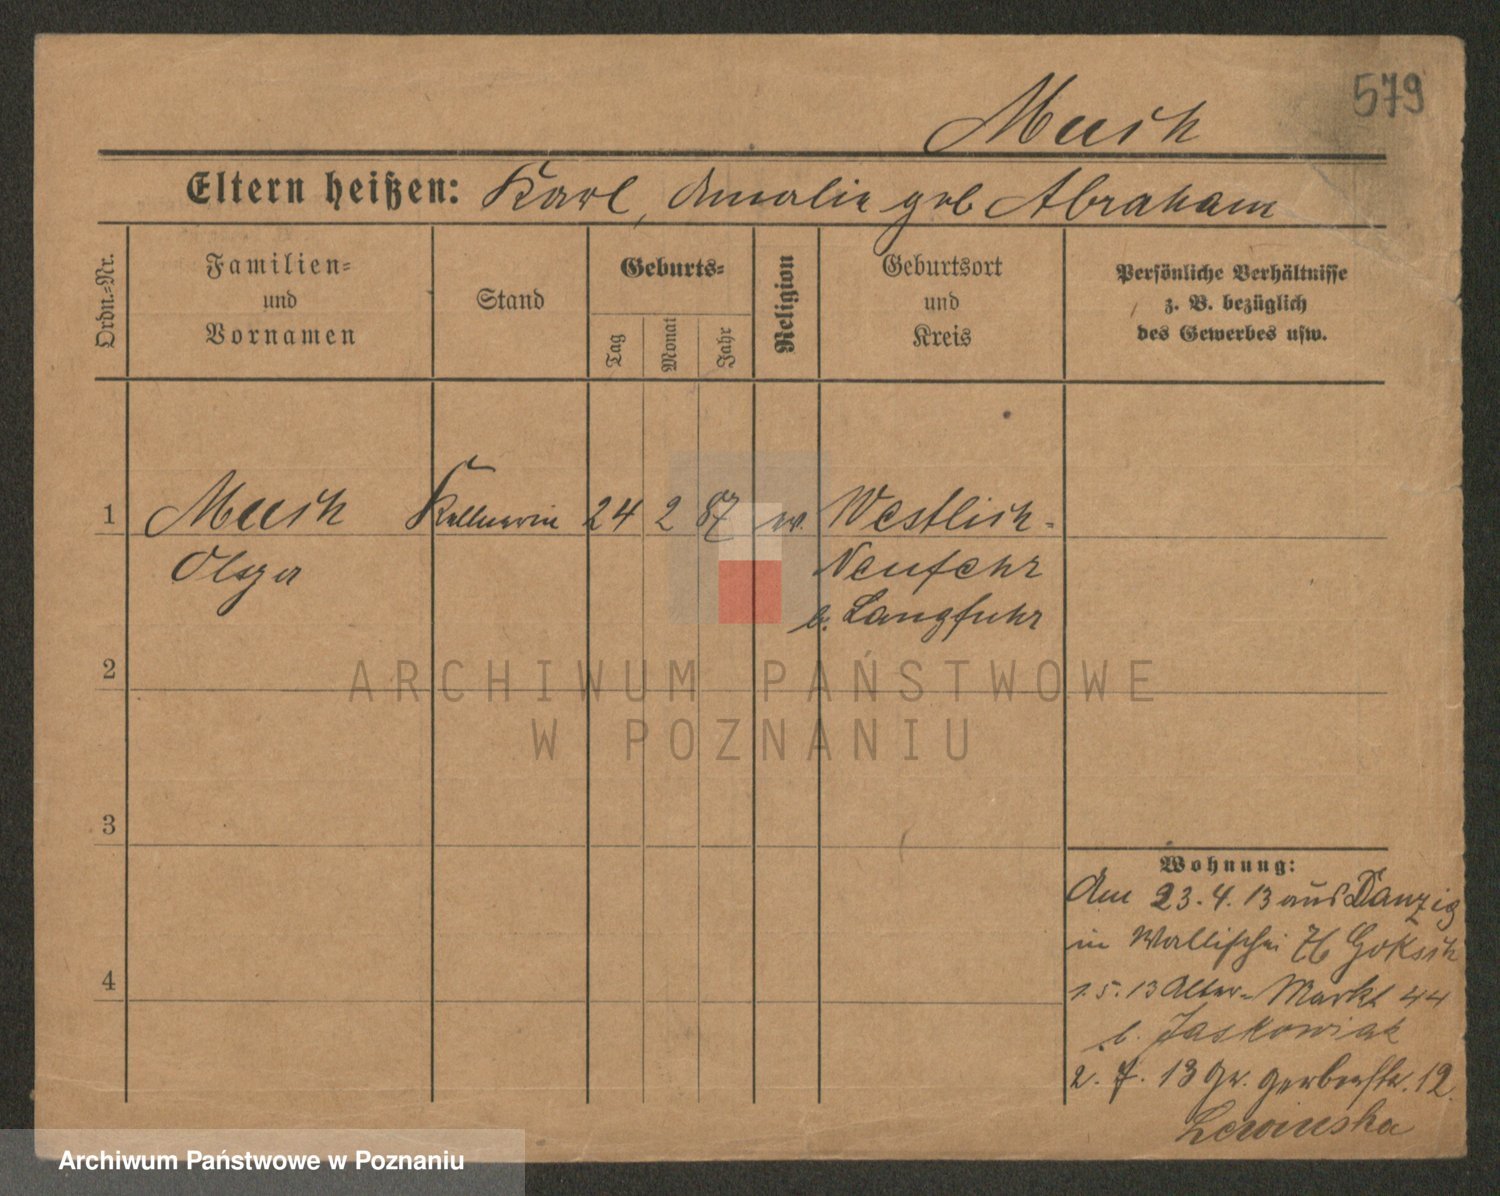 579
Musch
Eltern heißen: Karl, Amalie geb Abraham
Ordn.-Nr.
Familien-
und
Vornamen
Stand
Geburts-
Tag
Monat
Jahr
Religion
Geburtsort
und
Kreis
Persönliche Verhältnisse
z. B. bezüglich
des Gewerbes usw.
1 Musch Kellnerin 24 2 87 ev. Westlich-
Olga Neufehr
b. Langfuhr
2
3
4
Wohnung:
Am 23.4.13 aus Danzig
in Wallischei
1.5.13 Alter-Markt 44
b. Jaskowiak
2.7.13 Gr. Gerberstr. 12
Lewinska
ARCHIWUM PAŃSTWOWE
W POZNANIU
Archiwum Państwowe w Poznaniu